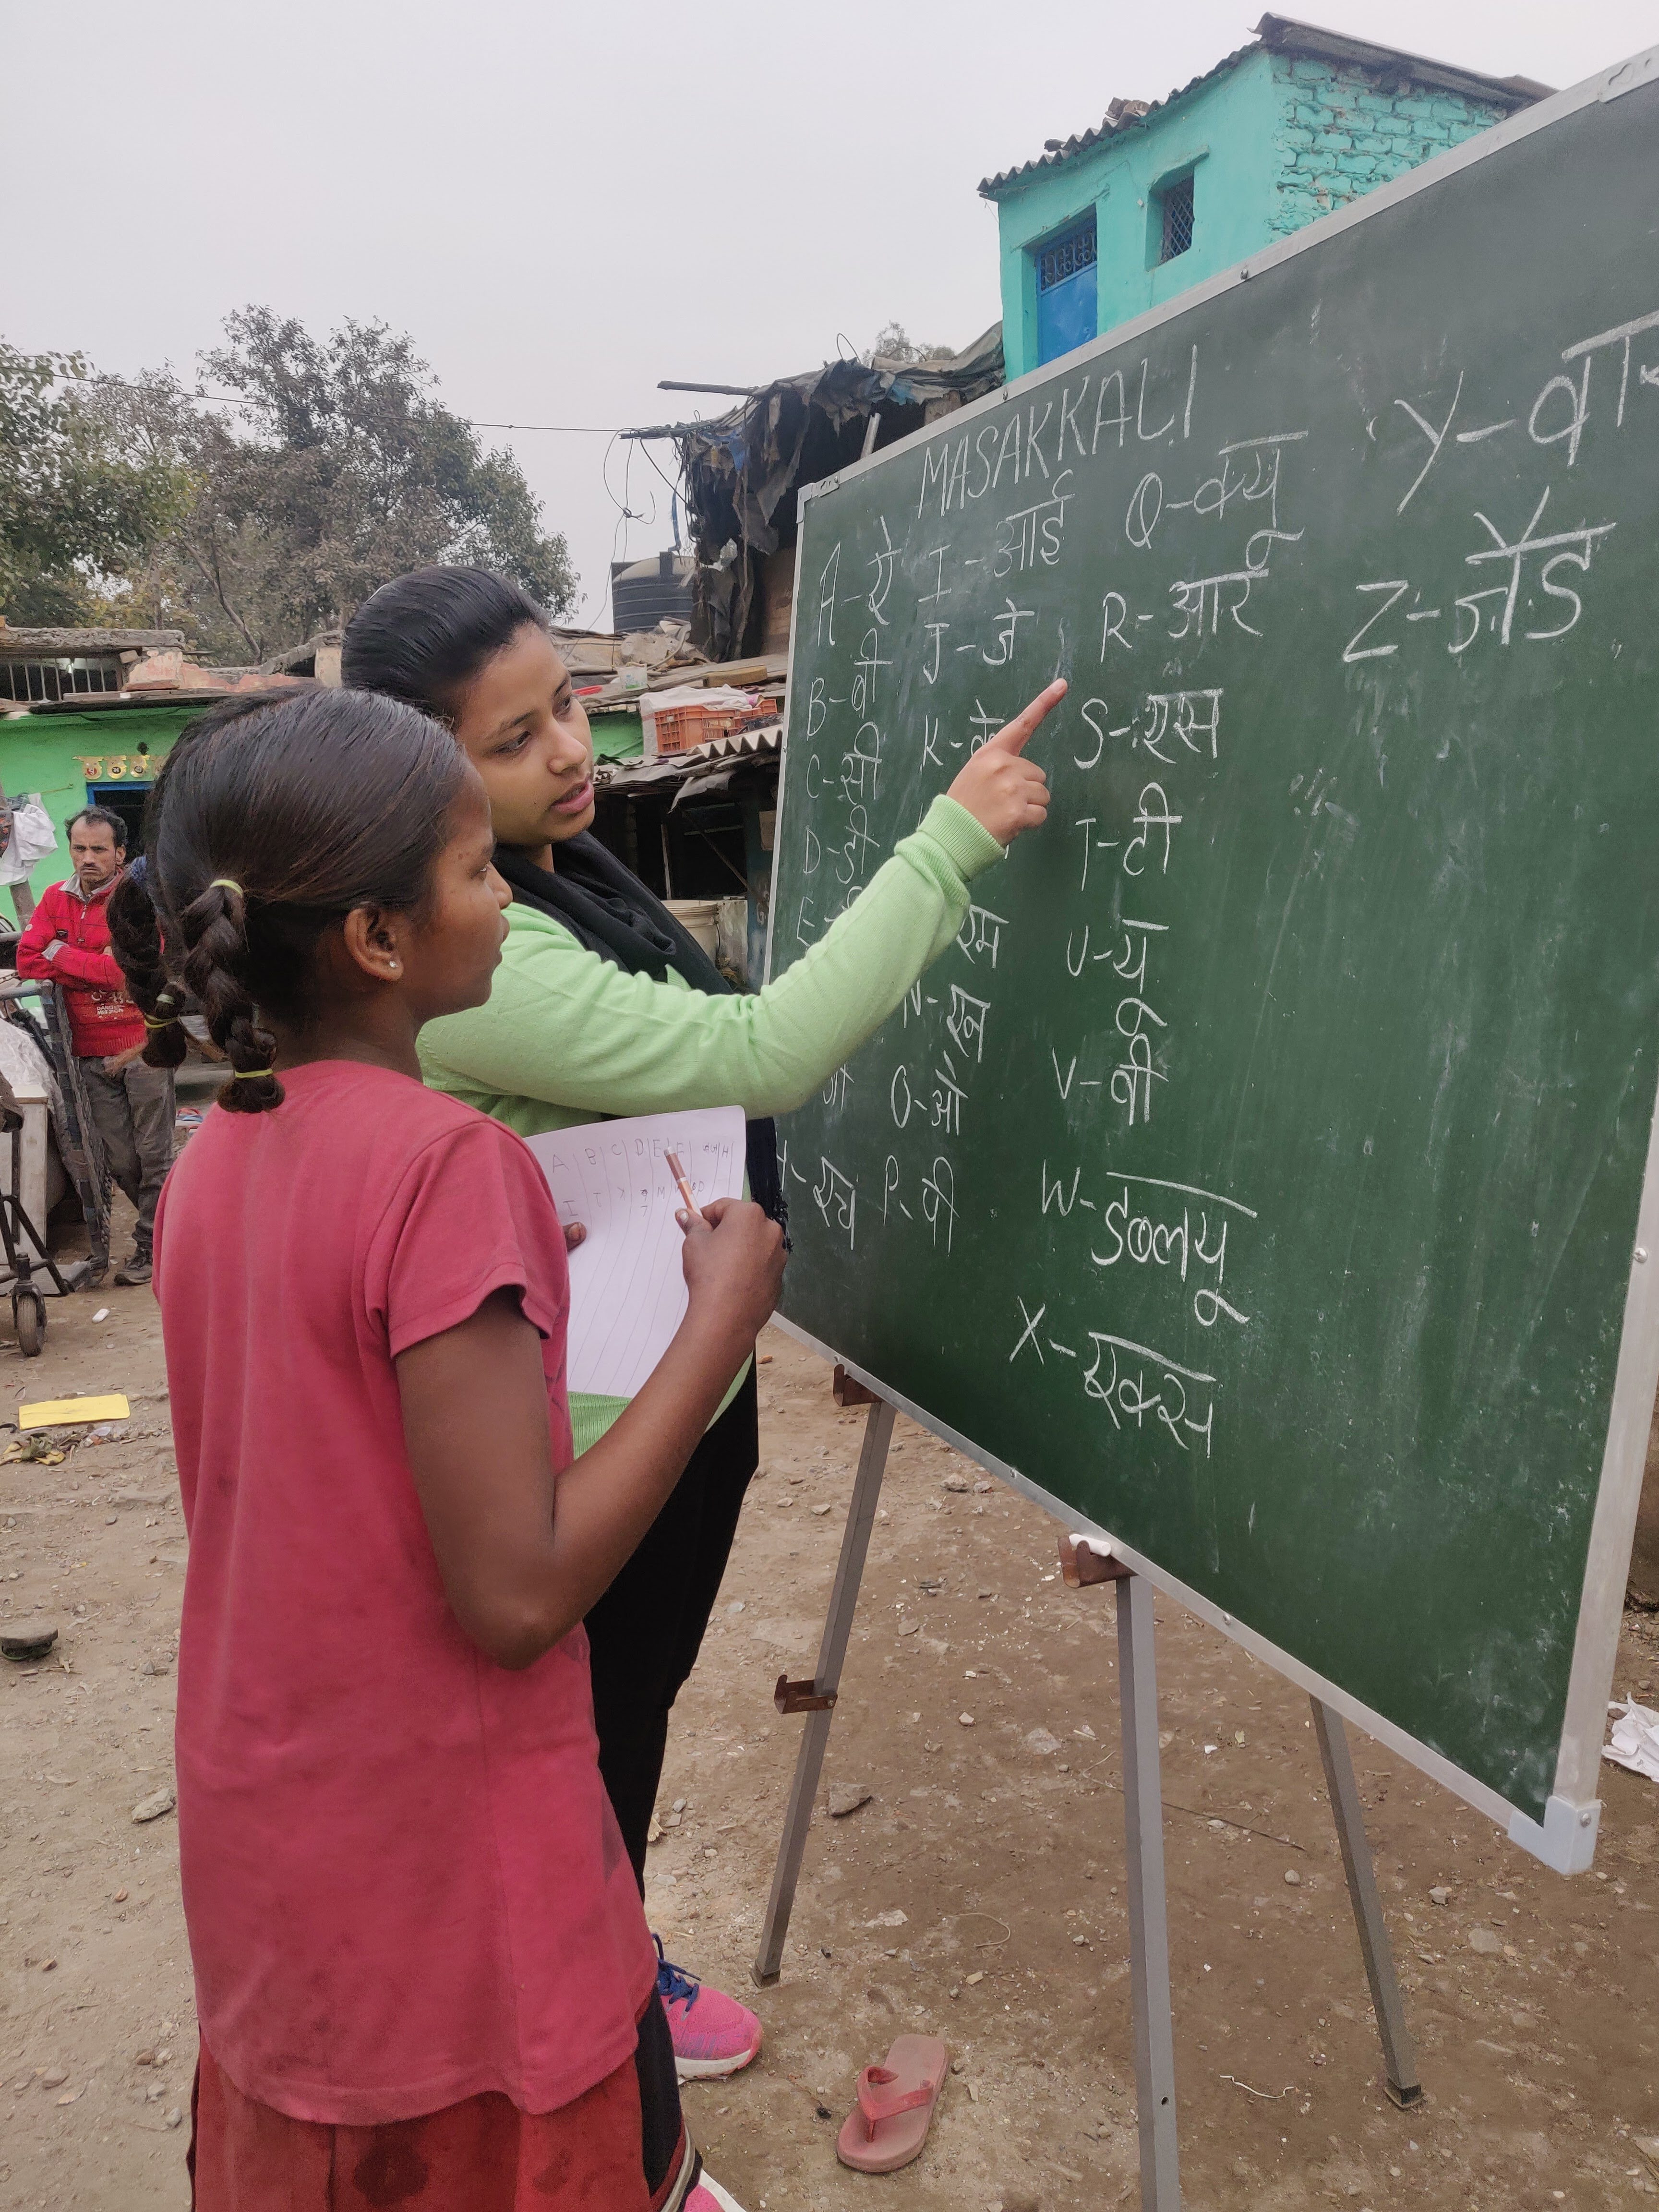 MASAKKALI
A-ऐ
B-बी
C-सी
D-डी
I-आई
J-जे
K-के
एम
N-एन
O-ओ
P-पी
एच
Q-क्यू
R-आर
S-एस
T-टी
U-यू
V-वी
W-डब्लयू
X-एक्स
Y-वा
Z-जेड
A B C D E